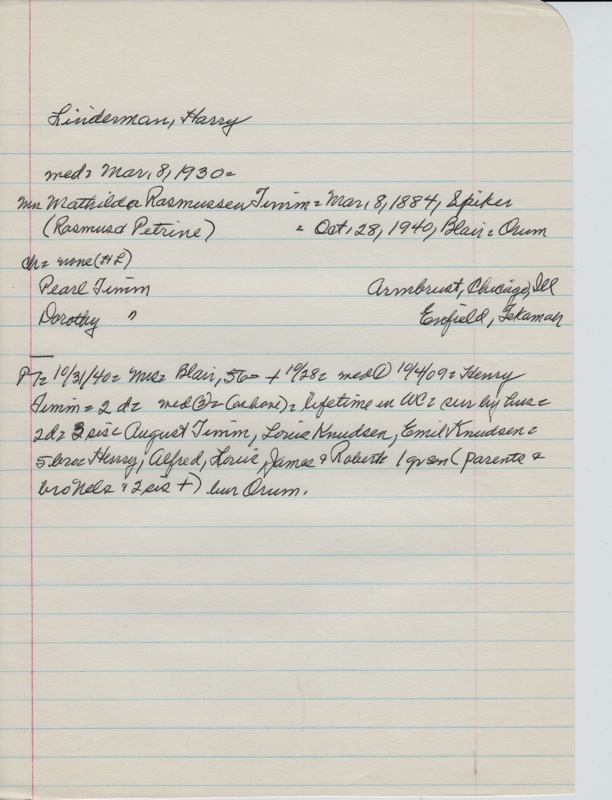 Linderman, Harry
med= Mar, 8, 1930=
Mrs Mathilda Rasmussen Timm= Mar, 8, 1884, Spiker
(Rasmus & Petrine) = Oct, 28, 1940, Blair= Orum
Ch= none (HL)
Pearl Timm Armbrust, Chicago, Ill
Dorothy " Enfield, Tekamah
PT= 10/31/40= Mrs= Blair, 56= + 10/28= med① 10/4/09= Henry
Timm= 2 d= med(2)= (as above)= lifetime in WC= sur by hus=
2d= 3 sis= August Timm, Louis Knudsen, Emil Knudsen=
5 bro= Henry, Alfred, Louis, James & Robert= 1 gr son (parents &
bro Nels & 2 sis +) bur Orum.